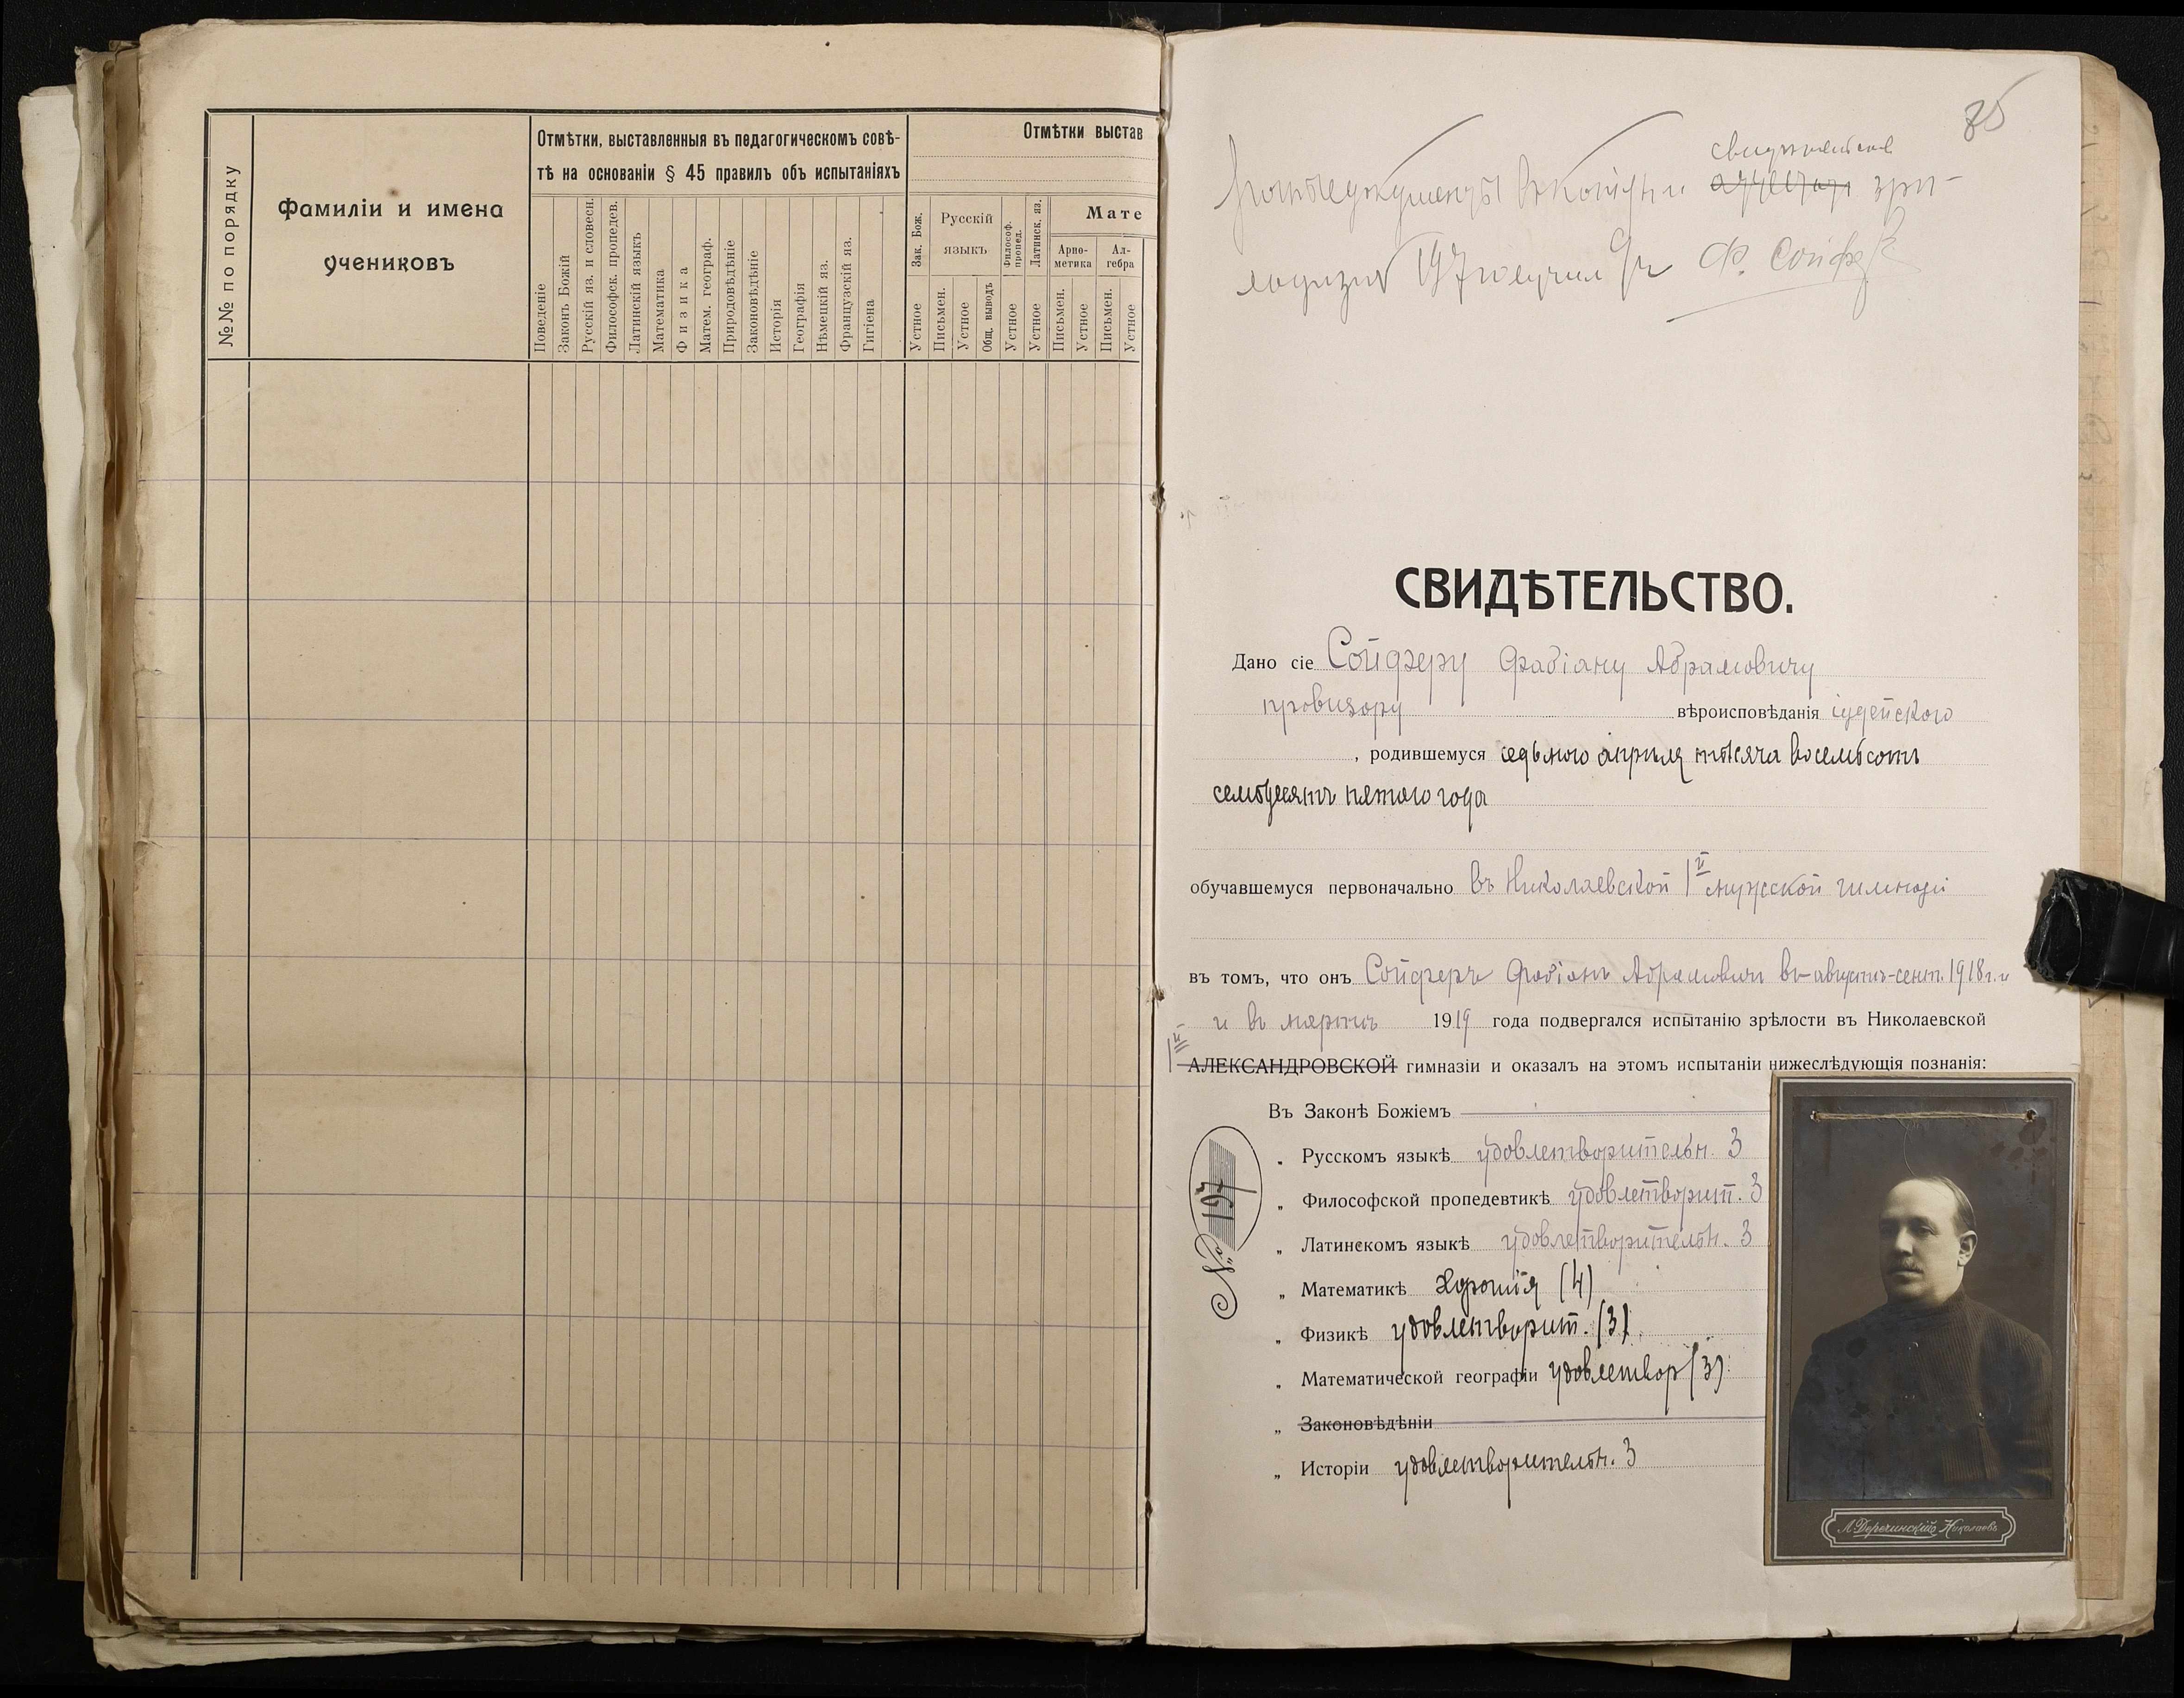 №№ по порядку
Фамиліи и имена
учениковъ
Отмѣтки, выставленныя въ педагогическомъ совѣ-
тѣ на основаніи § 45 правилъ объ испытаніяхъ
Поведеніе
Законъ Божій
Русскій яз. и словесн.
Философск. пропедев.
Латинскій языкъ
Математика
Физика
Матем. географ.
Природовѣдѣніе
Законовѣдѣніе
Исторія
Географія
Нѣмецкій яз.
Французскій яз.
Гигіена
Отмѣтки выстав
Зак. Бож.
Русскій
языкъ
Философ. пропед.
Латинск. яз.
Мате
Арио-
метика
Ал-
гебра
Устное
Письмен.
Устное
Общ. выводъ
Устное
Устное
Письмен.
Устное
Письмен.
Устное
85
197 получил Ф. Сойфер
СВИДѢТЕЛЬСТВО.
Дано сіе Сойферу Фабіану Абрамовичу
провизору вѣроисповѣданія іудейского
, родившемуся седьмого апрѣля тысяча восемьсотъ
семьдесятъ пятого года
обучавшемуся первоначально въ Николаевской I й мужской гимназіи
въ томъ, что онъ Сойферъ Фабіанъ Абрамовичъ въ августѣ-сент. 1918 г. и
и въ мартѣ 1919 года подвергался испытанію зрѣлости въ Николаевской
I й АЛЕКСАНДРОВСКОЙ гимназіи и оказалъ на этомъ испытаніи нижеслѣдующія познанія:
Въ Законѣ Божіемъ
„ Русскомъ языкѣ удовлетворительн. 3
„ Философской пропедевтикѣ удовлетворит. 3
„ Латинскомъ языкѣ удовлетворительн. 3
„ Математикѣ хорошія (4)
„ Физикѣ удовлетворит. (3)
„ Математической географіи удовлетвор (3)
„ Законовѣдѣніи
„ Исторіи удовлетворительн. 3
№ 197
А. Деречинскій Николаевъ